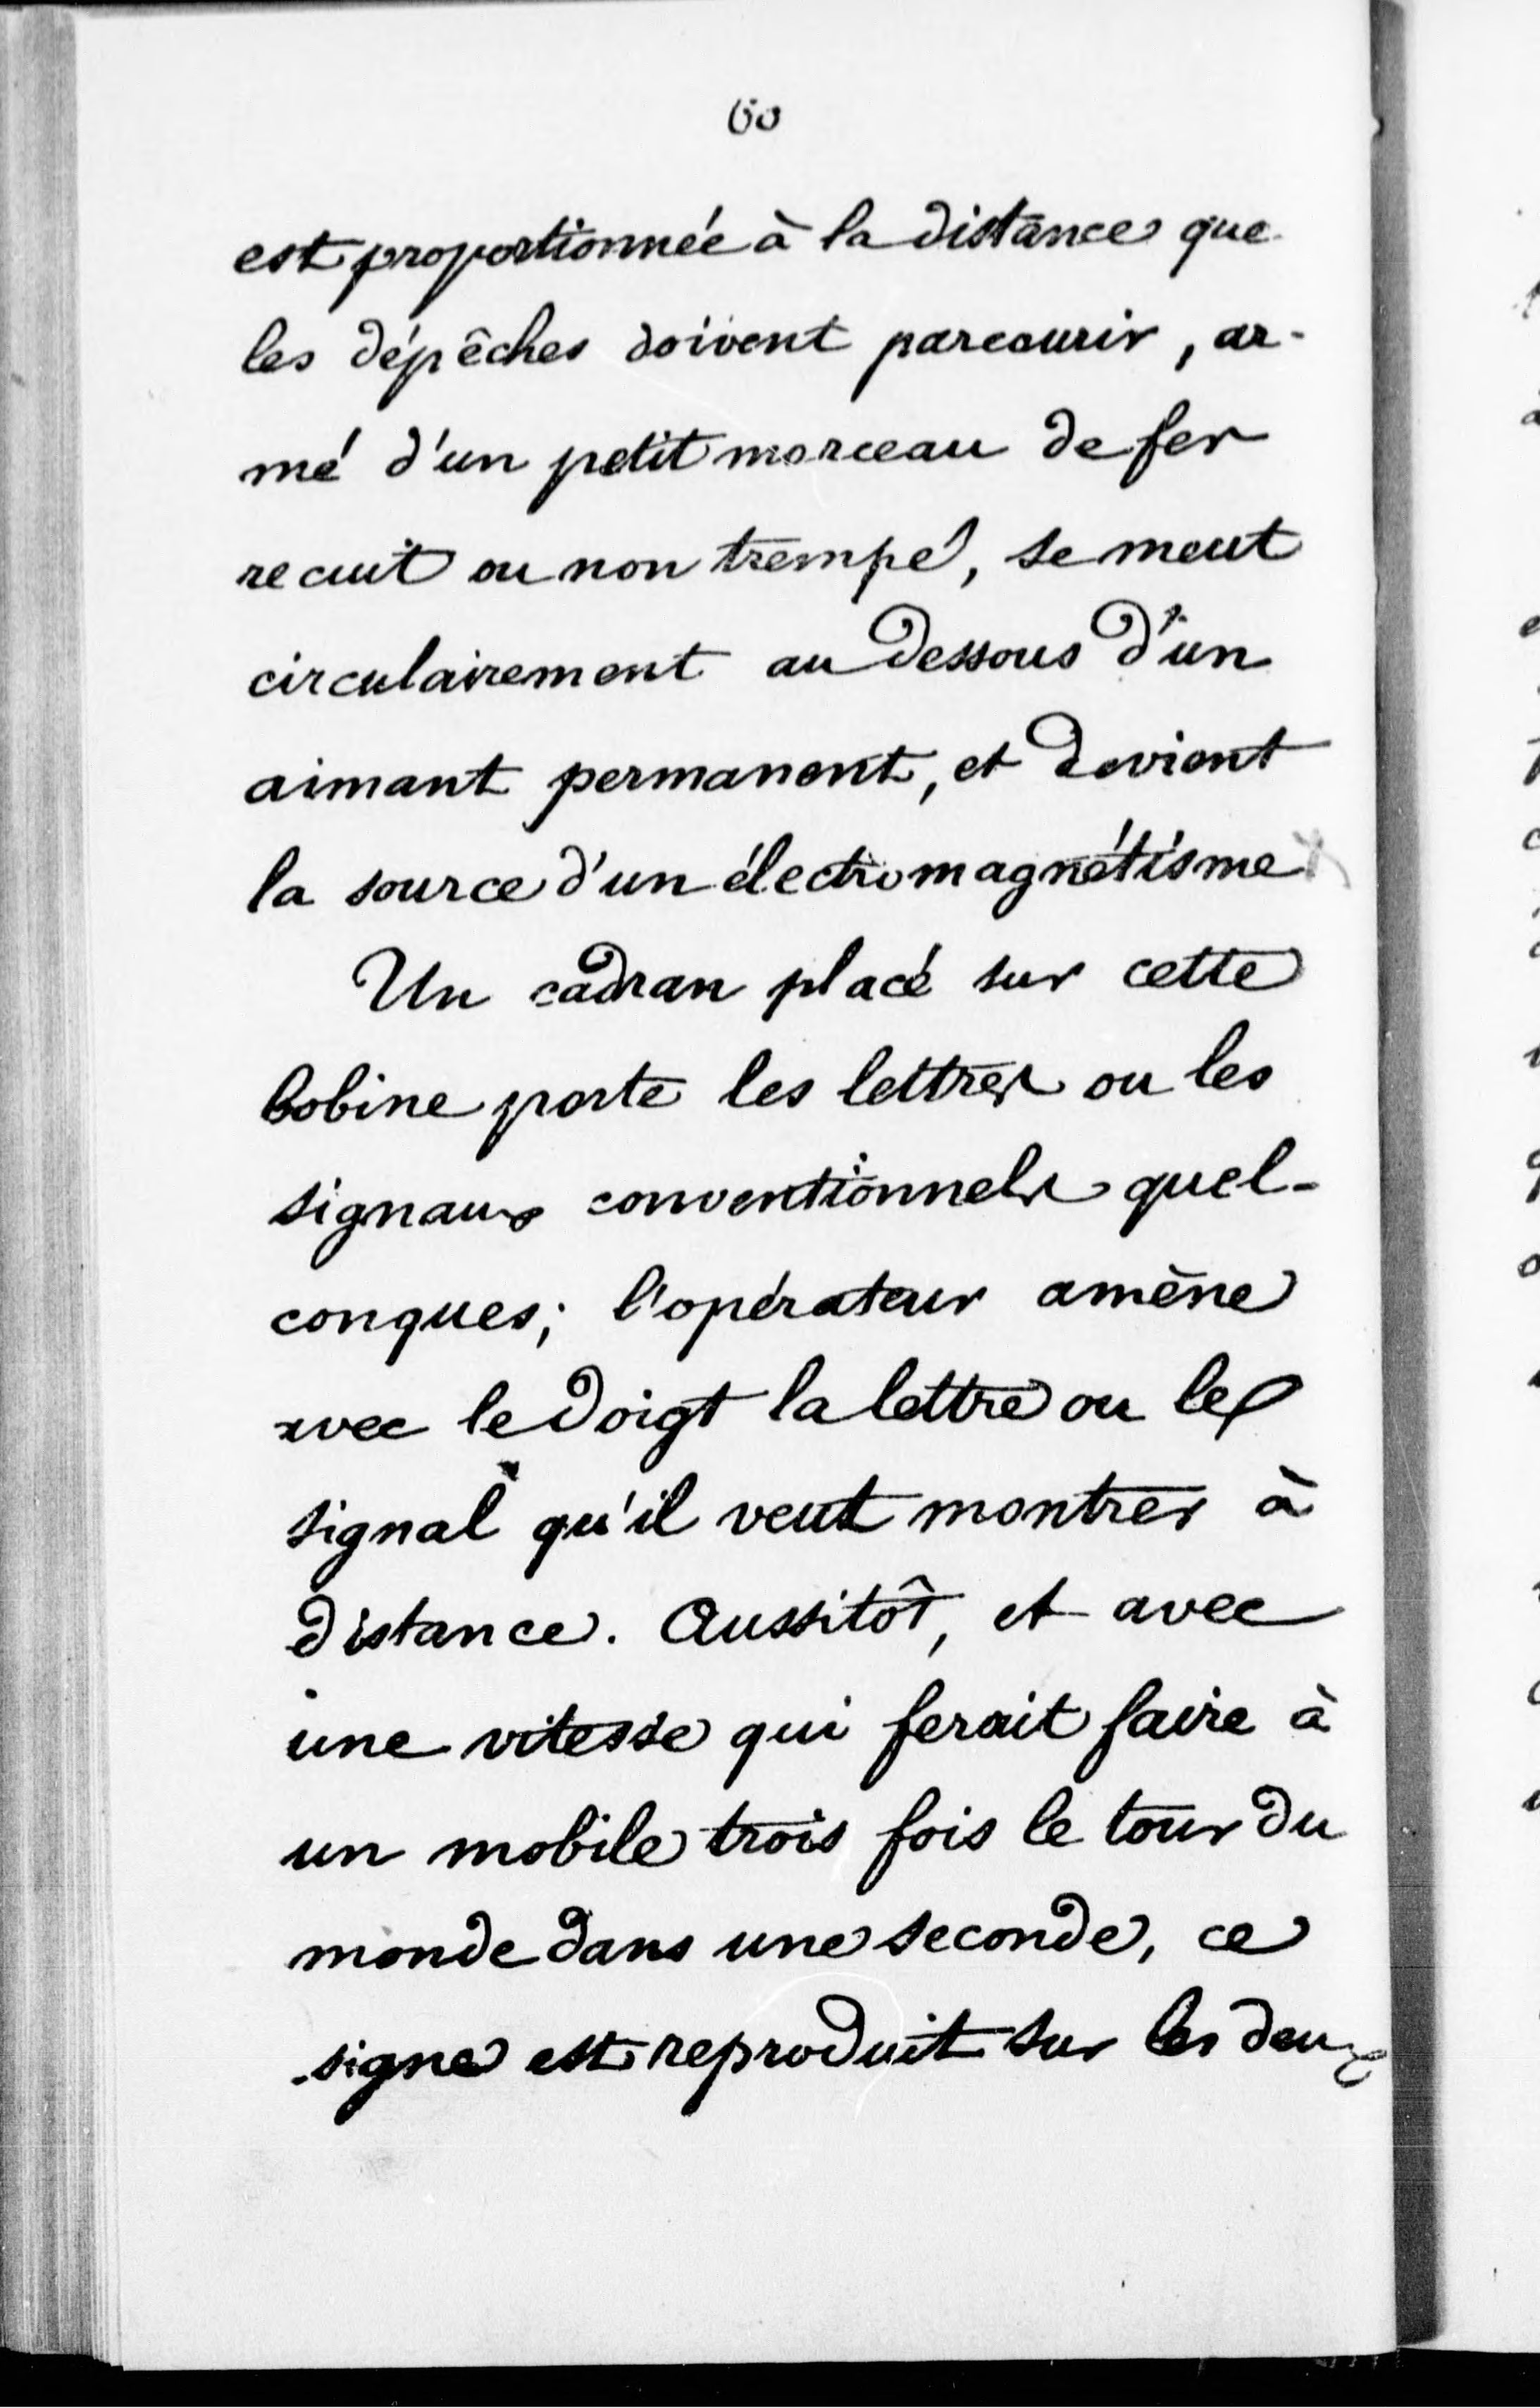 60
est proportionnée à la distance que
les dépêches doivent parcourir, ar-
mé d'un petit morceau de fer
recuit ou non trempé, se meut
circulairement au dessous d'un
aimant permanent, et devient
la source d'un électromagnétisme
Un cadran placé sur cette
bobine porte les lettres ou les
signaux conventionnels quel-
conques; l'opérateur amène
avec le doigt la lettre ou le
signal qu'il veut montrer à
distance. Aussitôt, et avec
une vitesse qui ferait faire à
un mobile trois fois le tour du
monde dans une seconde, ce
signe est reproduit sur les deux